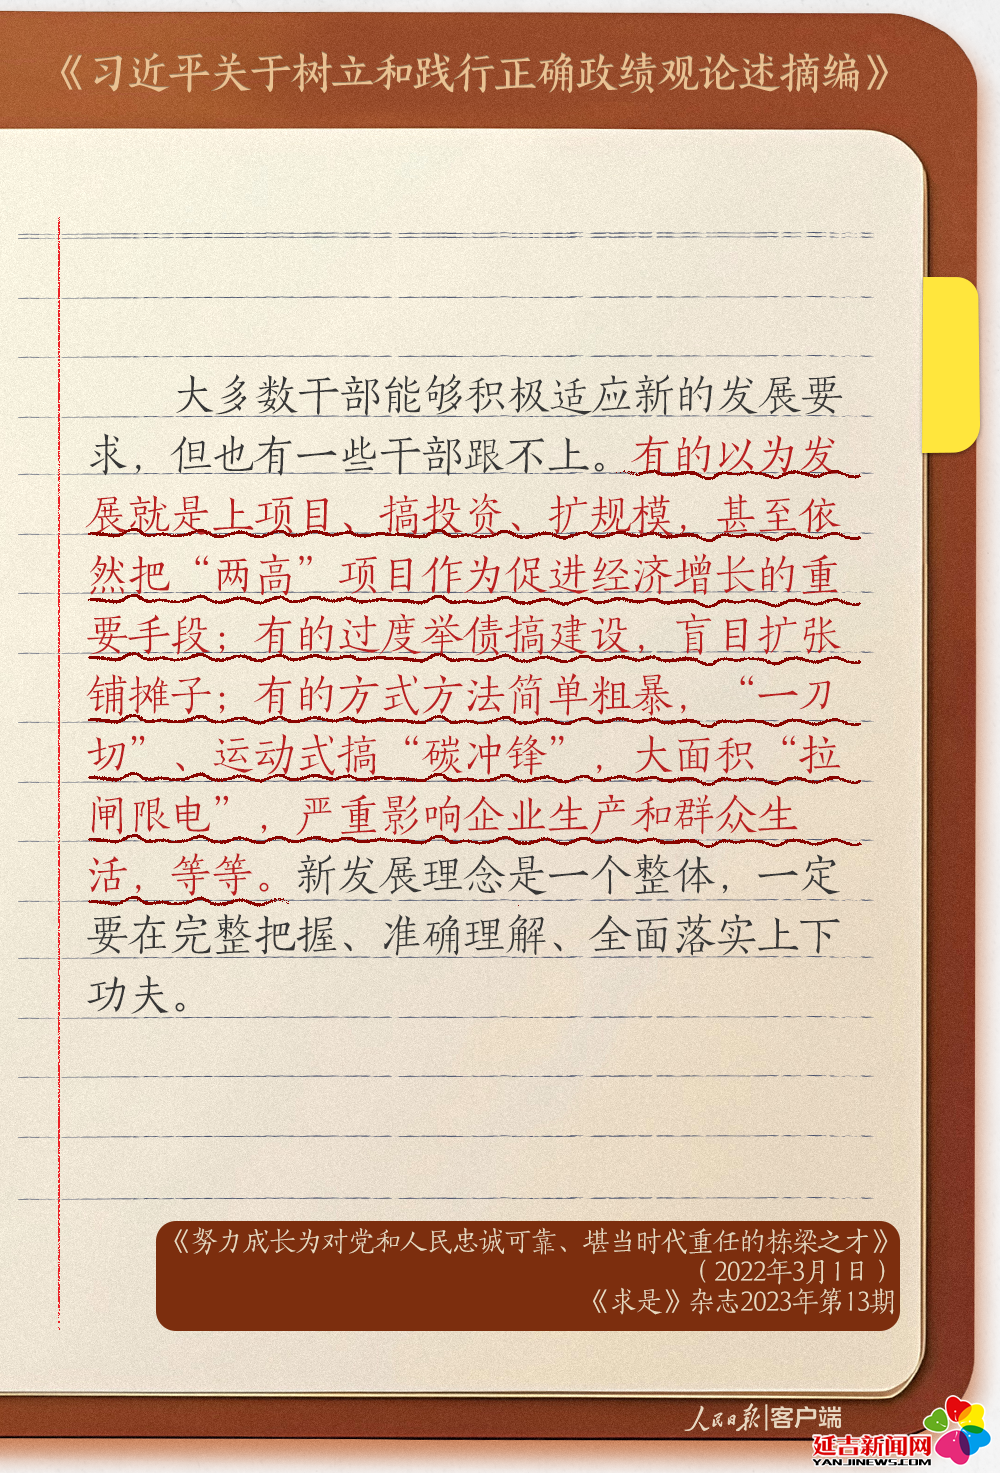 《习近平关于树立和践行正确政绩观论述摘编》
大多数干部能够积极适应新的发展要
求，但也有一些干部跟不上。有的以为发
展就是上项目、搞投资、扩规模，甚至依
然把“两高”项目作为促进经济增长的重
要手段；有的过度举债搞建设，盲目扩张
铺摊子；有的方式方法简单粗暴，“一刀
切”、运动式搞“碳冲锋”，大面积“拉
闸限电”，严重影响企业生产和群众生
活，等等。新发展理念是一个整体，一定
要在完整把握、准确理解、全面落实上下
功夫。
《努力成长为对党和人民忠诚可靠、堪当时代重任的栋梁之才》
（2022年3月1日）
《求是》杂志2023年第13期
人民日报|客户端
延吉新闻网
YANJINEWS.COM